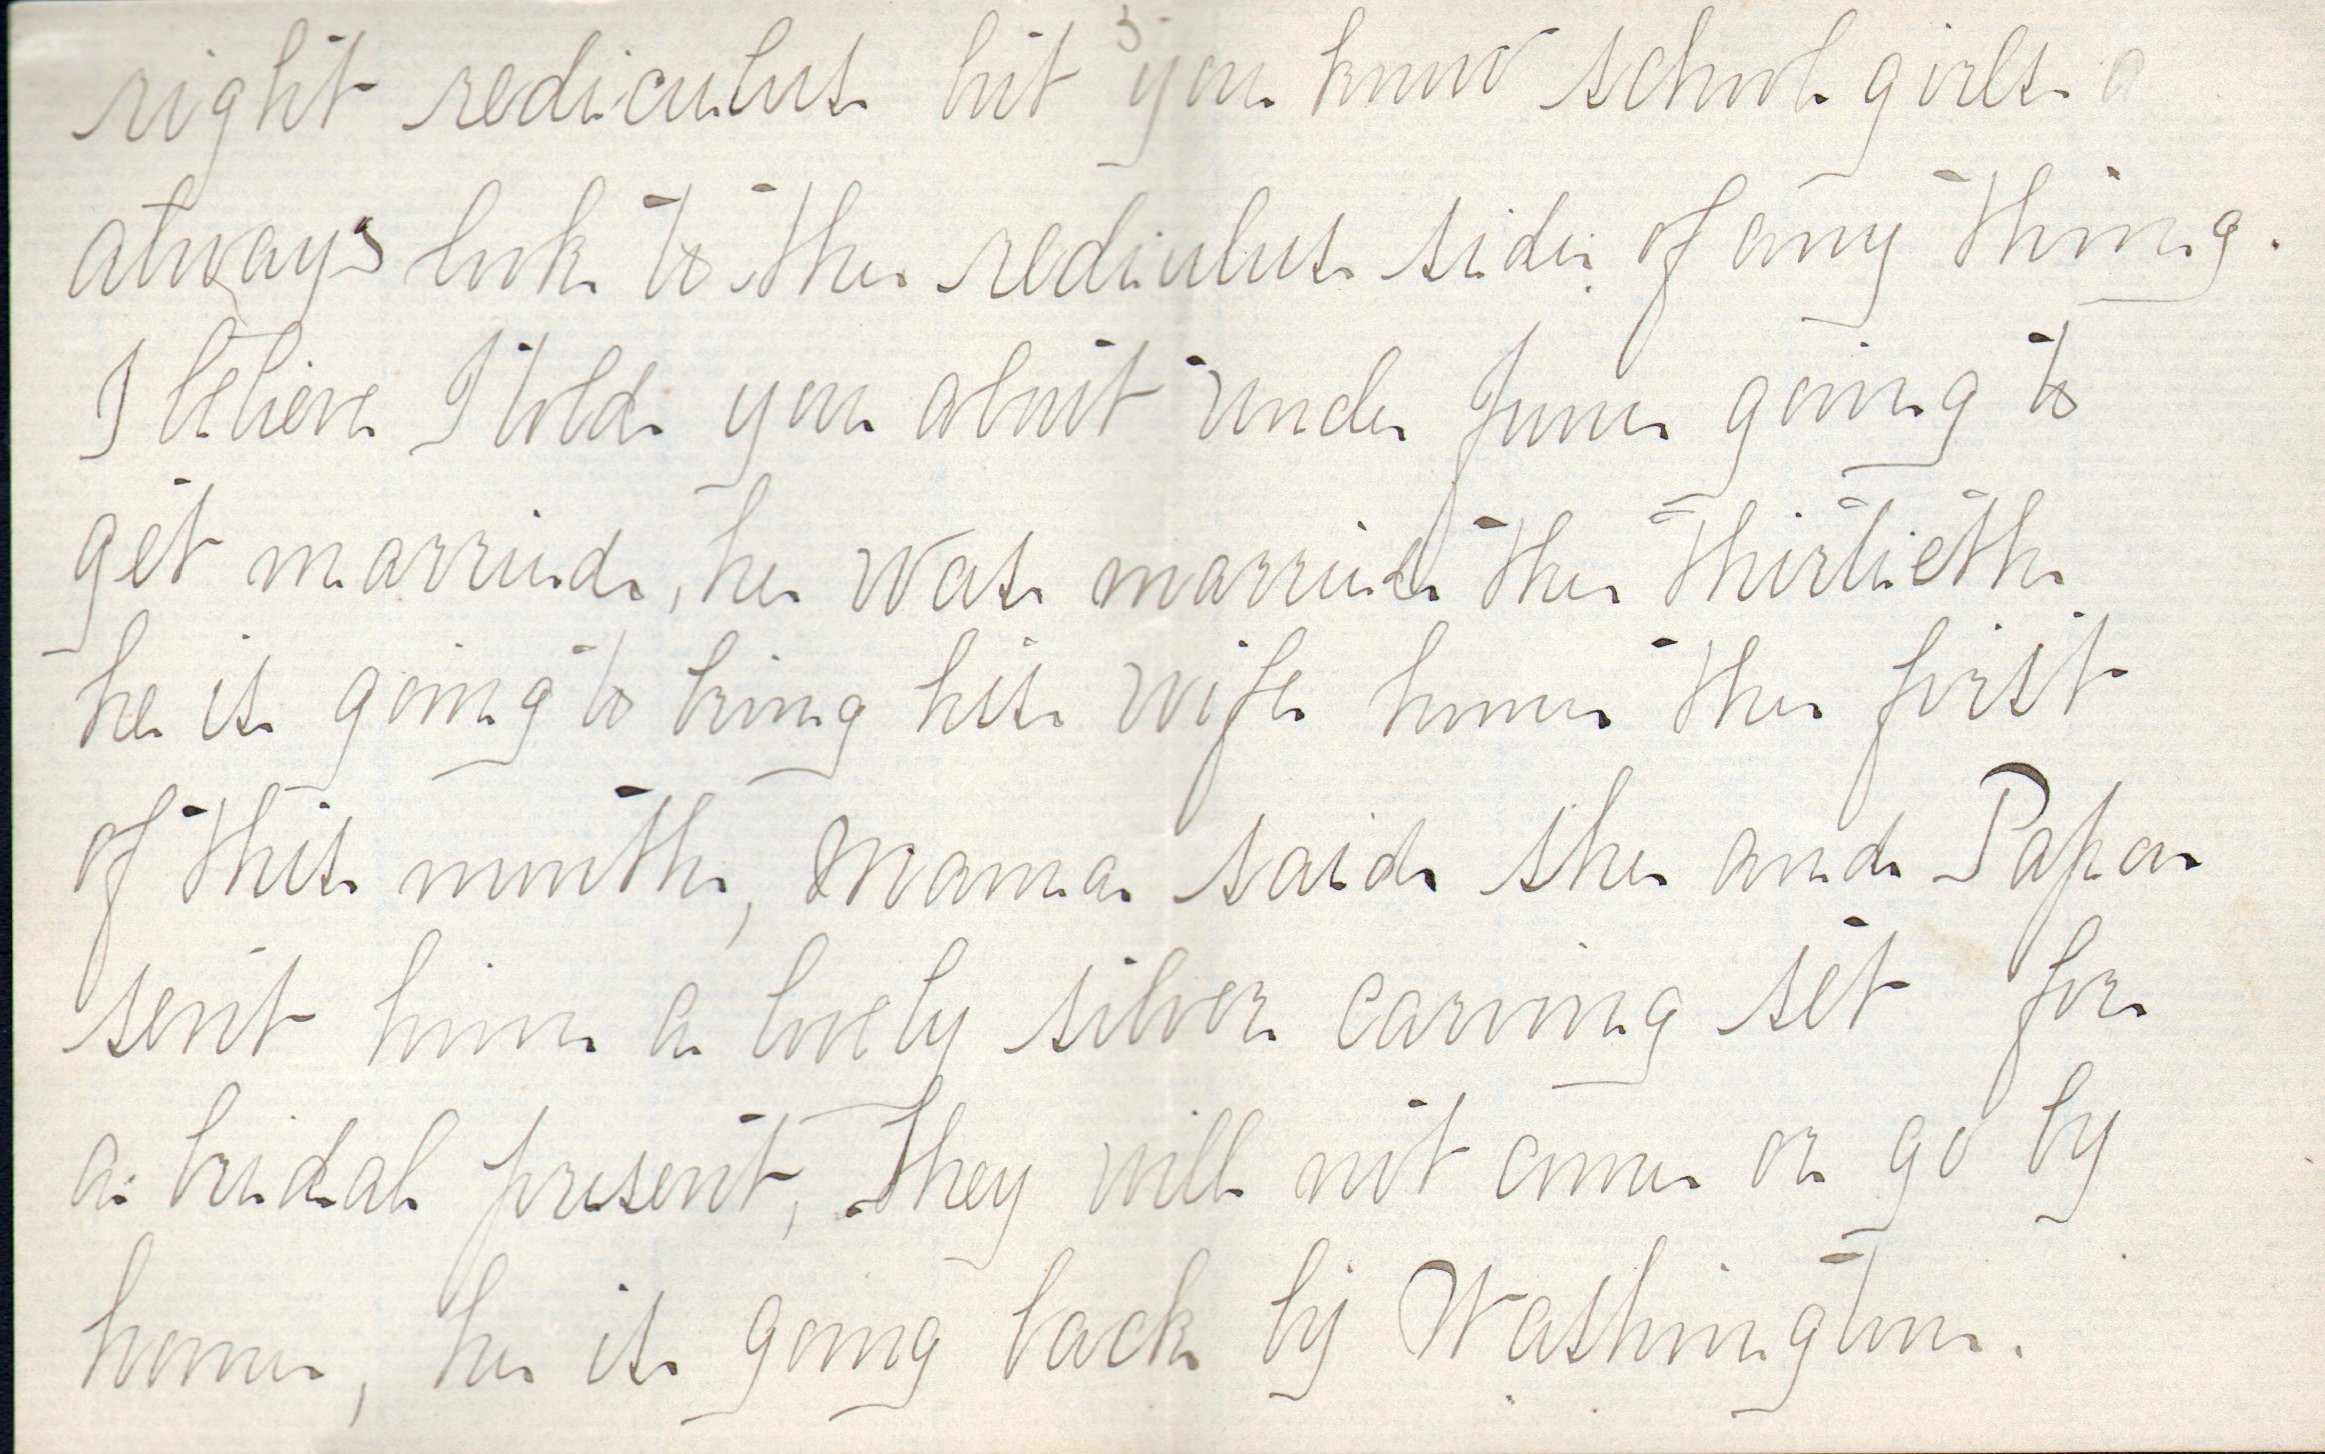 3
right rediculus but you know school girls a
always look to the rediulus side of any thing.
I believe I told you about Uncle June going to
get married, he was married the thirtieth
he is going to bring his wife home the first
of this month, Mama said she and Papa
sent him a lovely silver carving set for
a bridal present, They will not come or go by
home, he is going back by Washington.